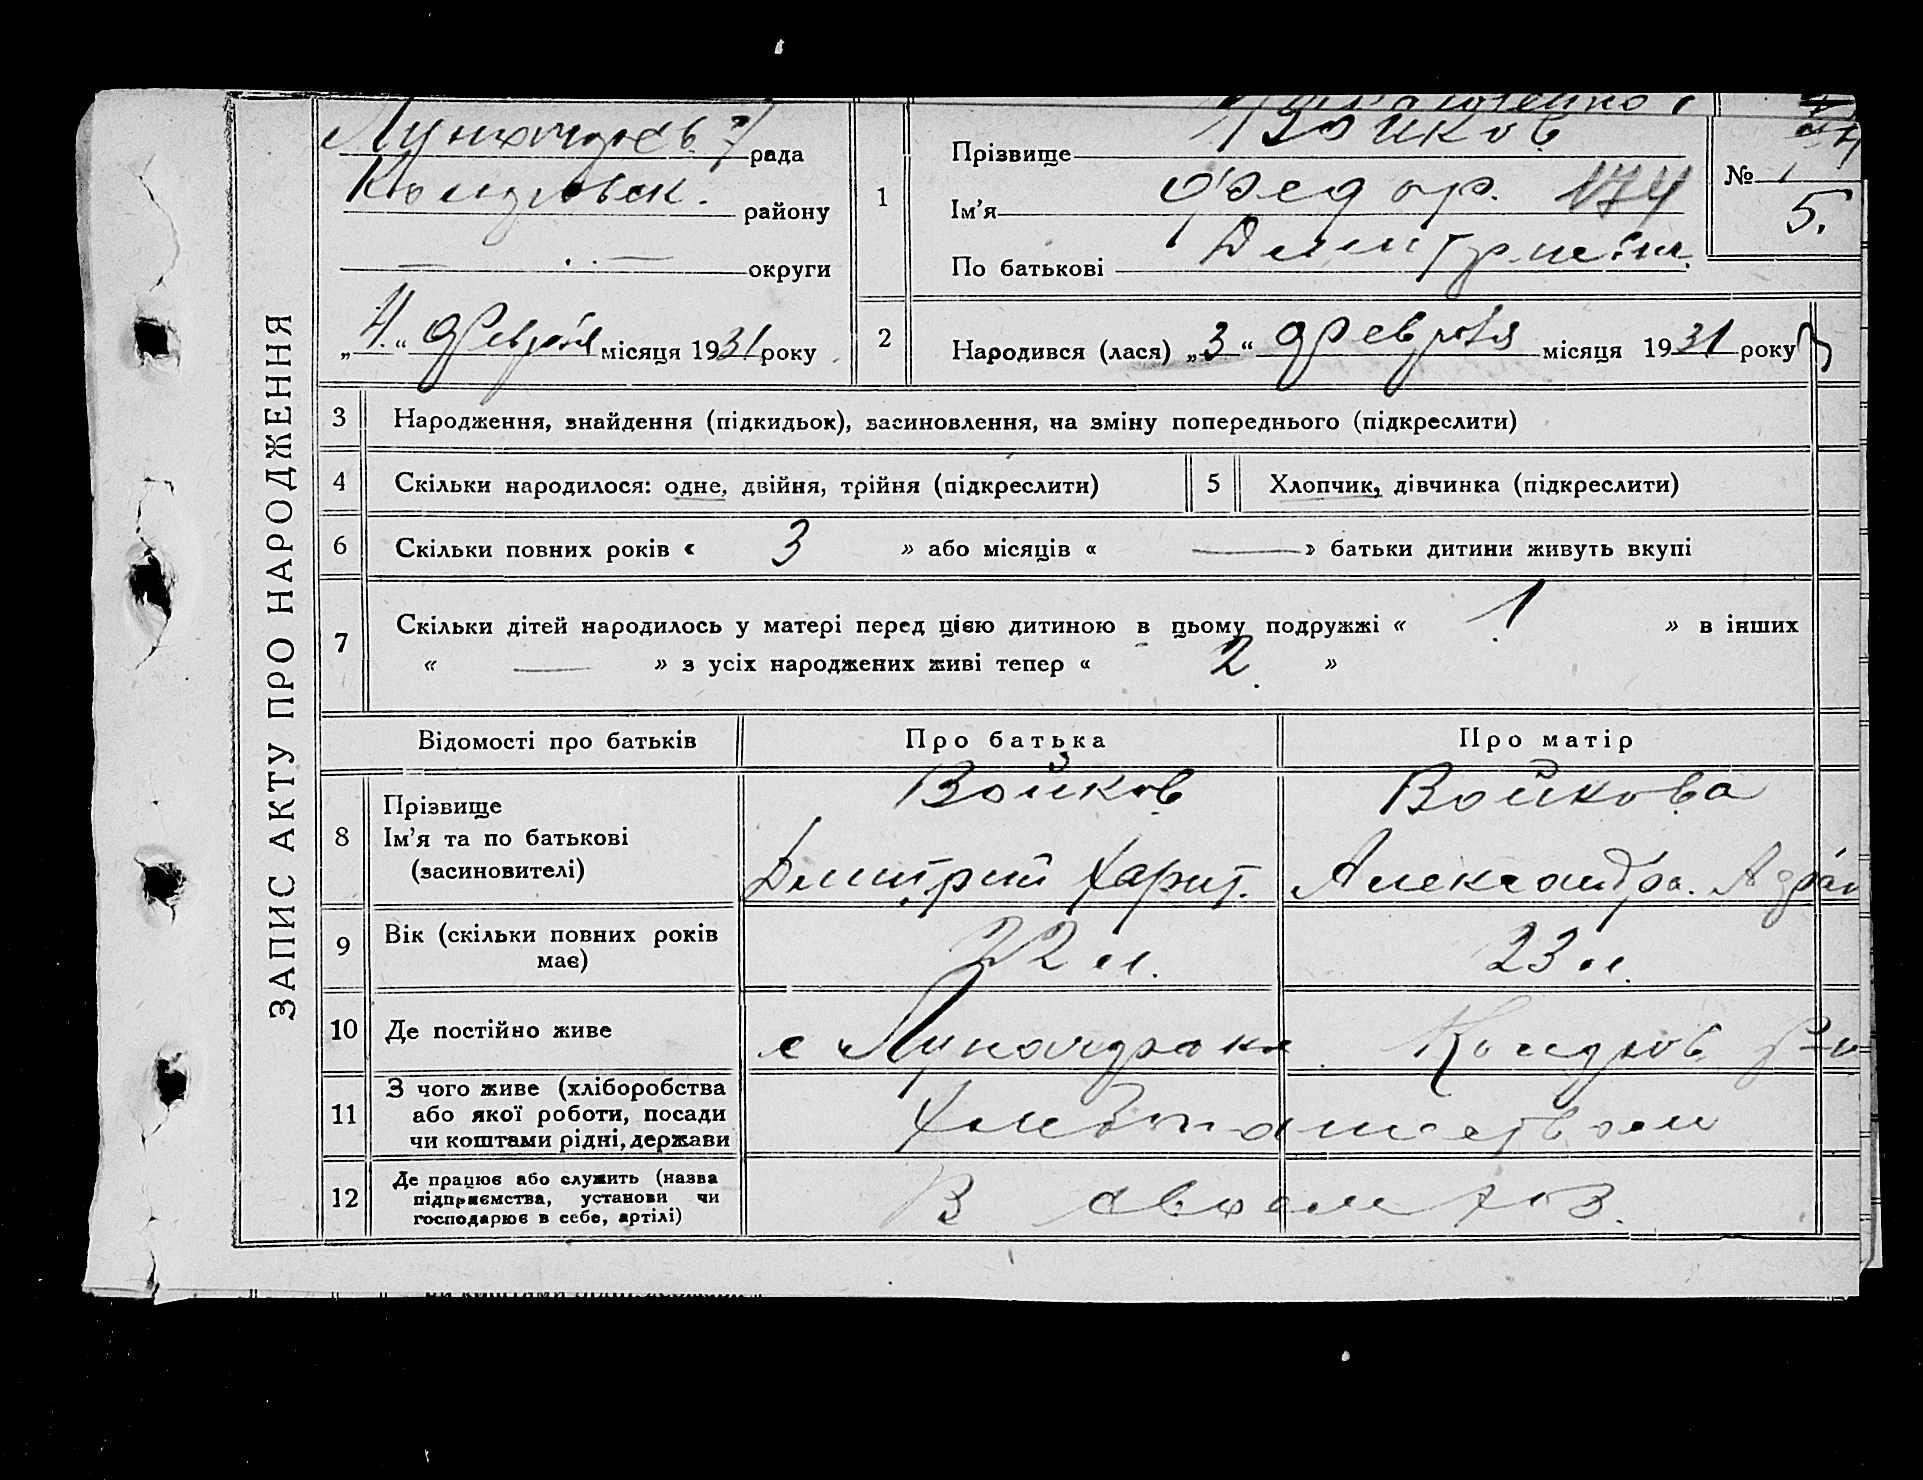 ЗАПИС АКТУ ПРО НАРОДЖЕННЯ
рада
району
округи
„4.“ Февраля місяця 1931 року
1
Прізвище Войков
Ім'я Федор. 174
По батькові
№ 1
5.
2 Народився (лася) „3“ Февраля місяця 1931 року
3 Народження, знайдення (підкидьок), засиновлення, на зміну попереднього (підкреслити)
4 Скільки народилося: одне, двійня, трійня (підкреслити) 5 Хлопчик, дівчинка (підкреслити)
6 Скільки повних років « 3 » або місяців « — » батьки дитини живуть вкупі
7 Скільки дітей народилось у матері перед цією дитиною в цьому подружжі « 1 » в інших
« — » з усіх народжених живі тепер « 2 »
Відомості про батьків Про батька Про матір
8 Прізвище
Ім'я та по батькові
(засиновителі)
Войков
Дмитрий Харит.
Войкова
Александра.
9 Вік (скільки повних років
має)
22 л.
23 л.
10 Де постійно живе
с
11 З чого живе (хліборобства
або якої роботи, посади
чи коштами рідні, держави
Хлебопашеством
12 Де працює або служить (назва
підприємства, установи чи
господарює в себе, артілі)
В своем хоз.